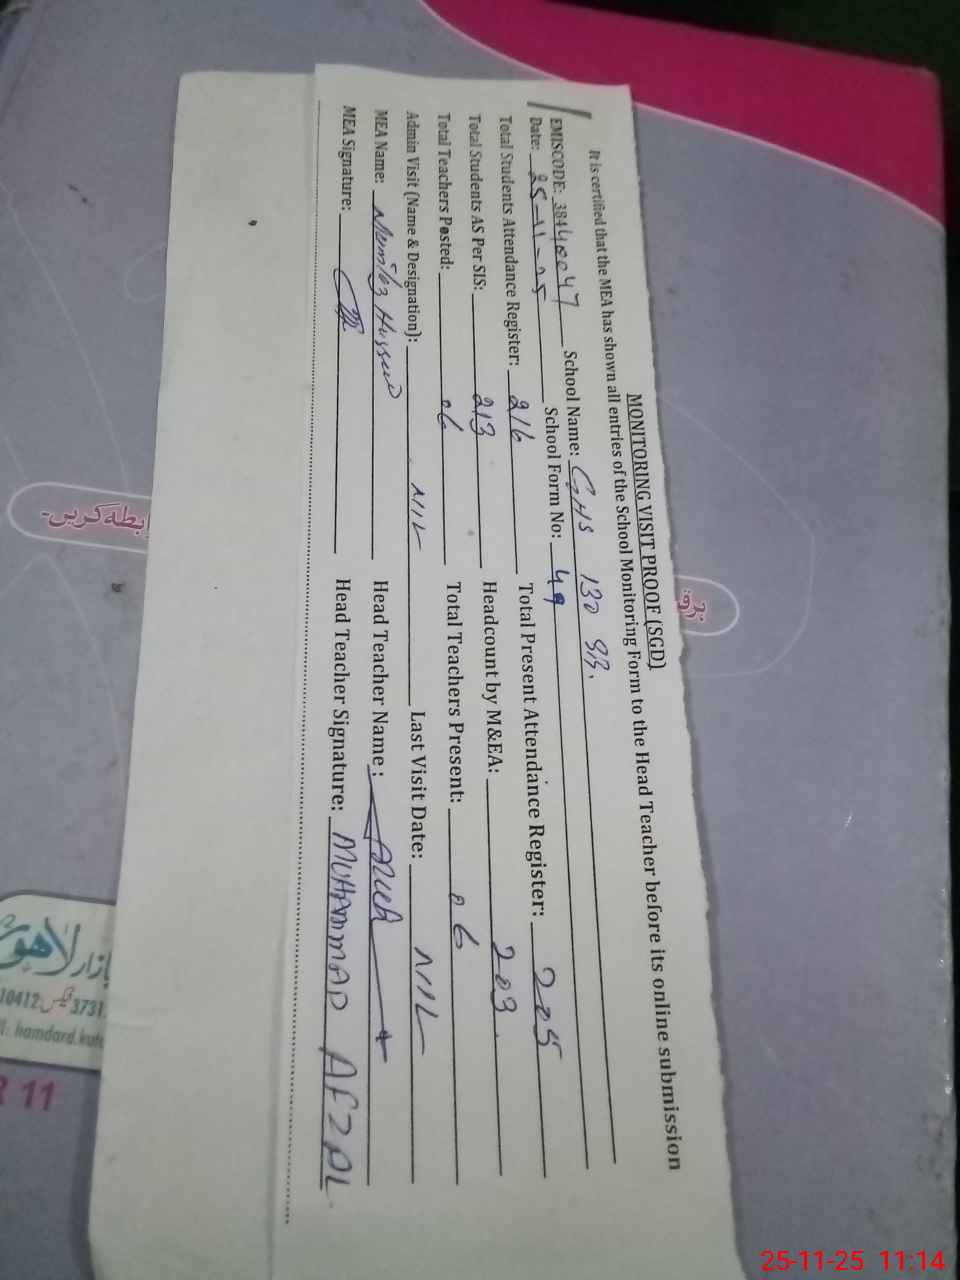 MONITORING VISIT PROOF (SGD)
It is certified that the MEA has shown all entries of the School Monitoring Form to the Head Teacher before its online submission
EMISCODE: 38440047 School Name: GHS 130 SB.
Date: 25-11-25 School Form No: 49
Total Students Attendance Register: 216 Total Present Attendance Register: 205
Total Students AS Per SIS: 213 Headcount by M&EA: 203
Total Teachers Posted: 06 Total Teachers Present: 06
Admin Visit (Name & Designation): NIL Last Visit Date: NIL
MEA Name: Hussain Head Teacher Name:
MEA Signature: Head Teacher Signature: MUHAMMAD AFZAL
ابطہ کریں۔
بازار لاہور
10412 فیکس: 3731
l: hamdard.kute
R 11
25-11-25 11:14